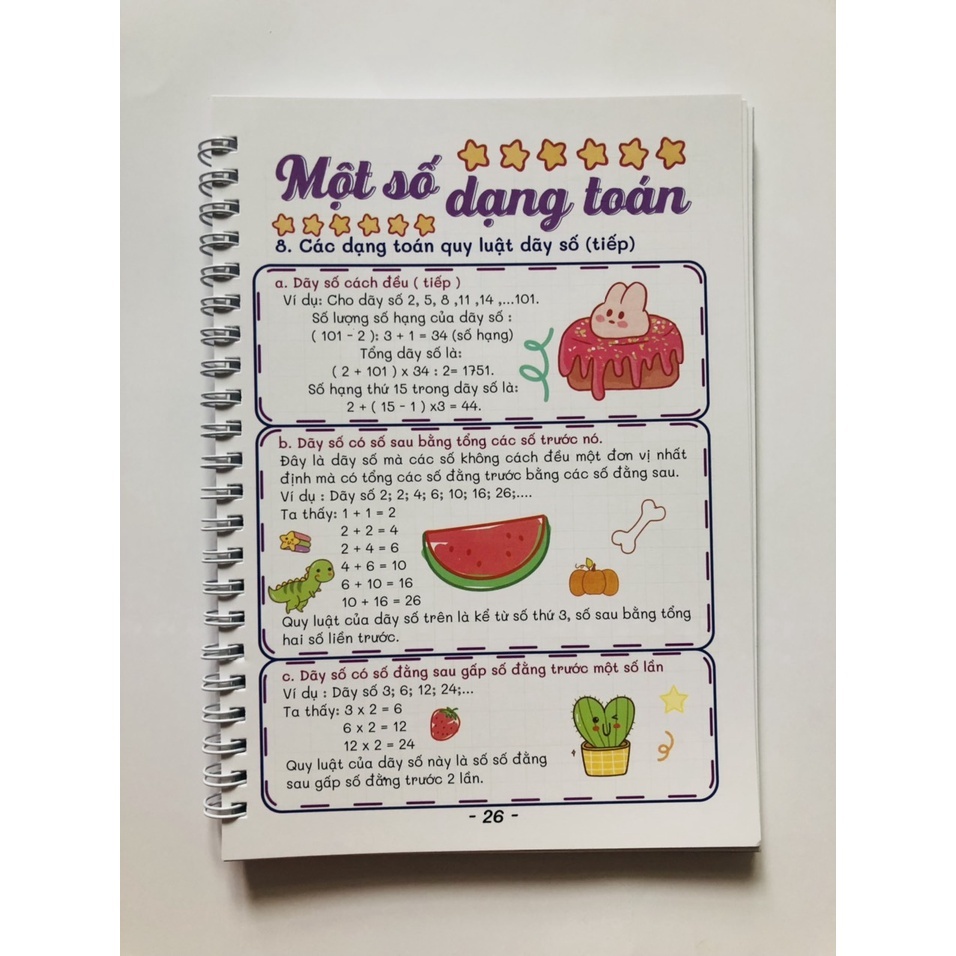 Một số dạng toán
8. Các dạng toán quy luật dãy số (tiếp)
a. Dãy số cách đều ( tiếp )
Ví dụ: Cho dãy số 2, 5, 8 ,11 ,14 ,...101.
Số lượng số hạng của dãy số :
( 101 - 2 ): 3 + 1 = 34 (số hạng)
Tổng dãy số là:
( 2 + 101 ) x 34 : 2= 1751.
Số hạng thứ 15 trong dãy số là:
2 + ( 15 - 1 ) x3 = 44.
b. Dãy số có số sau bằng tổng các số trước nó.
Đây là dãy số mà các số không cách đều một đơn vị nhất
định mà có tổng các số đằng trước bằng các số đằng sau.
Ví dụ : Dãy số 2; 2; 4; 6; 10; 16; 26;....
Ta thấy: 1 + 1 = 2
2 + 2 = 4
2 + 4 = 6
4 + 6 = 10
6 + 10 = 16
10 + 16 = 26
Quy luật của dãy số trên là kể từ số thứ 3, số sau bằng tổng
hai số liền trước.
c. Dãy số có số đằng sau gấp số đằng trước một số lần
Ví dụ : Dãy số 3; 6; 12; 24;...
Ta thấy: 3 x 2 = 6
6 x 2 = 12
12 x 2 = 24
Quy luật của dãy số này là số số đằng
sau gấp số đằng trước 2 lần.
- 26 -